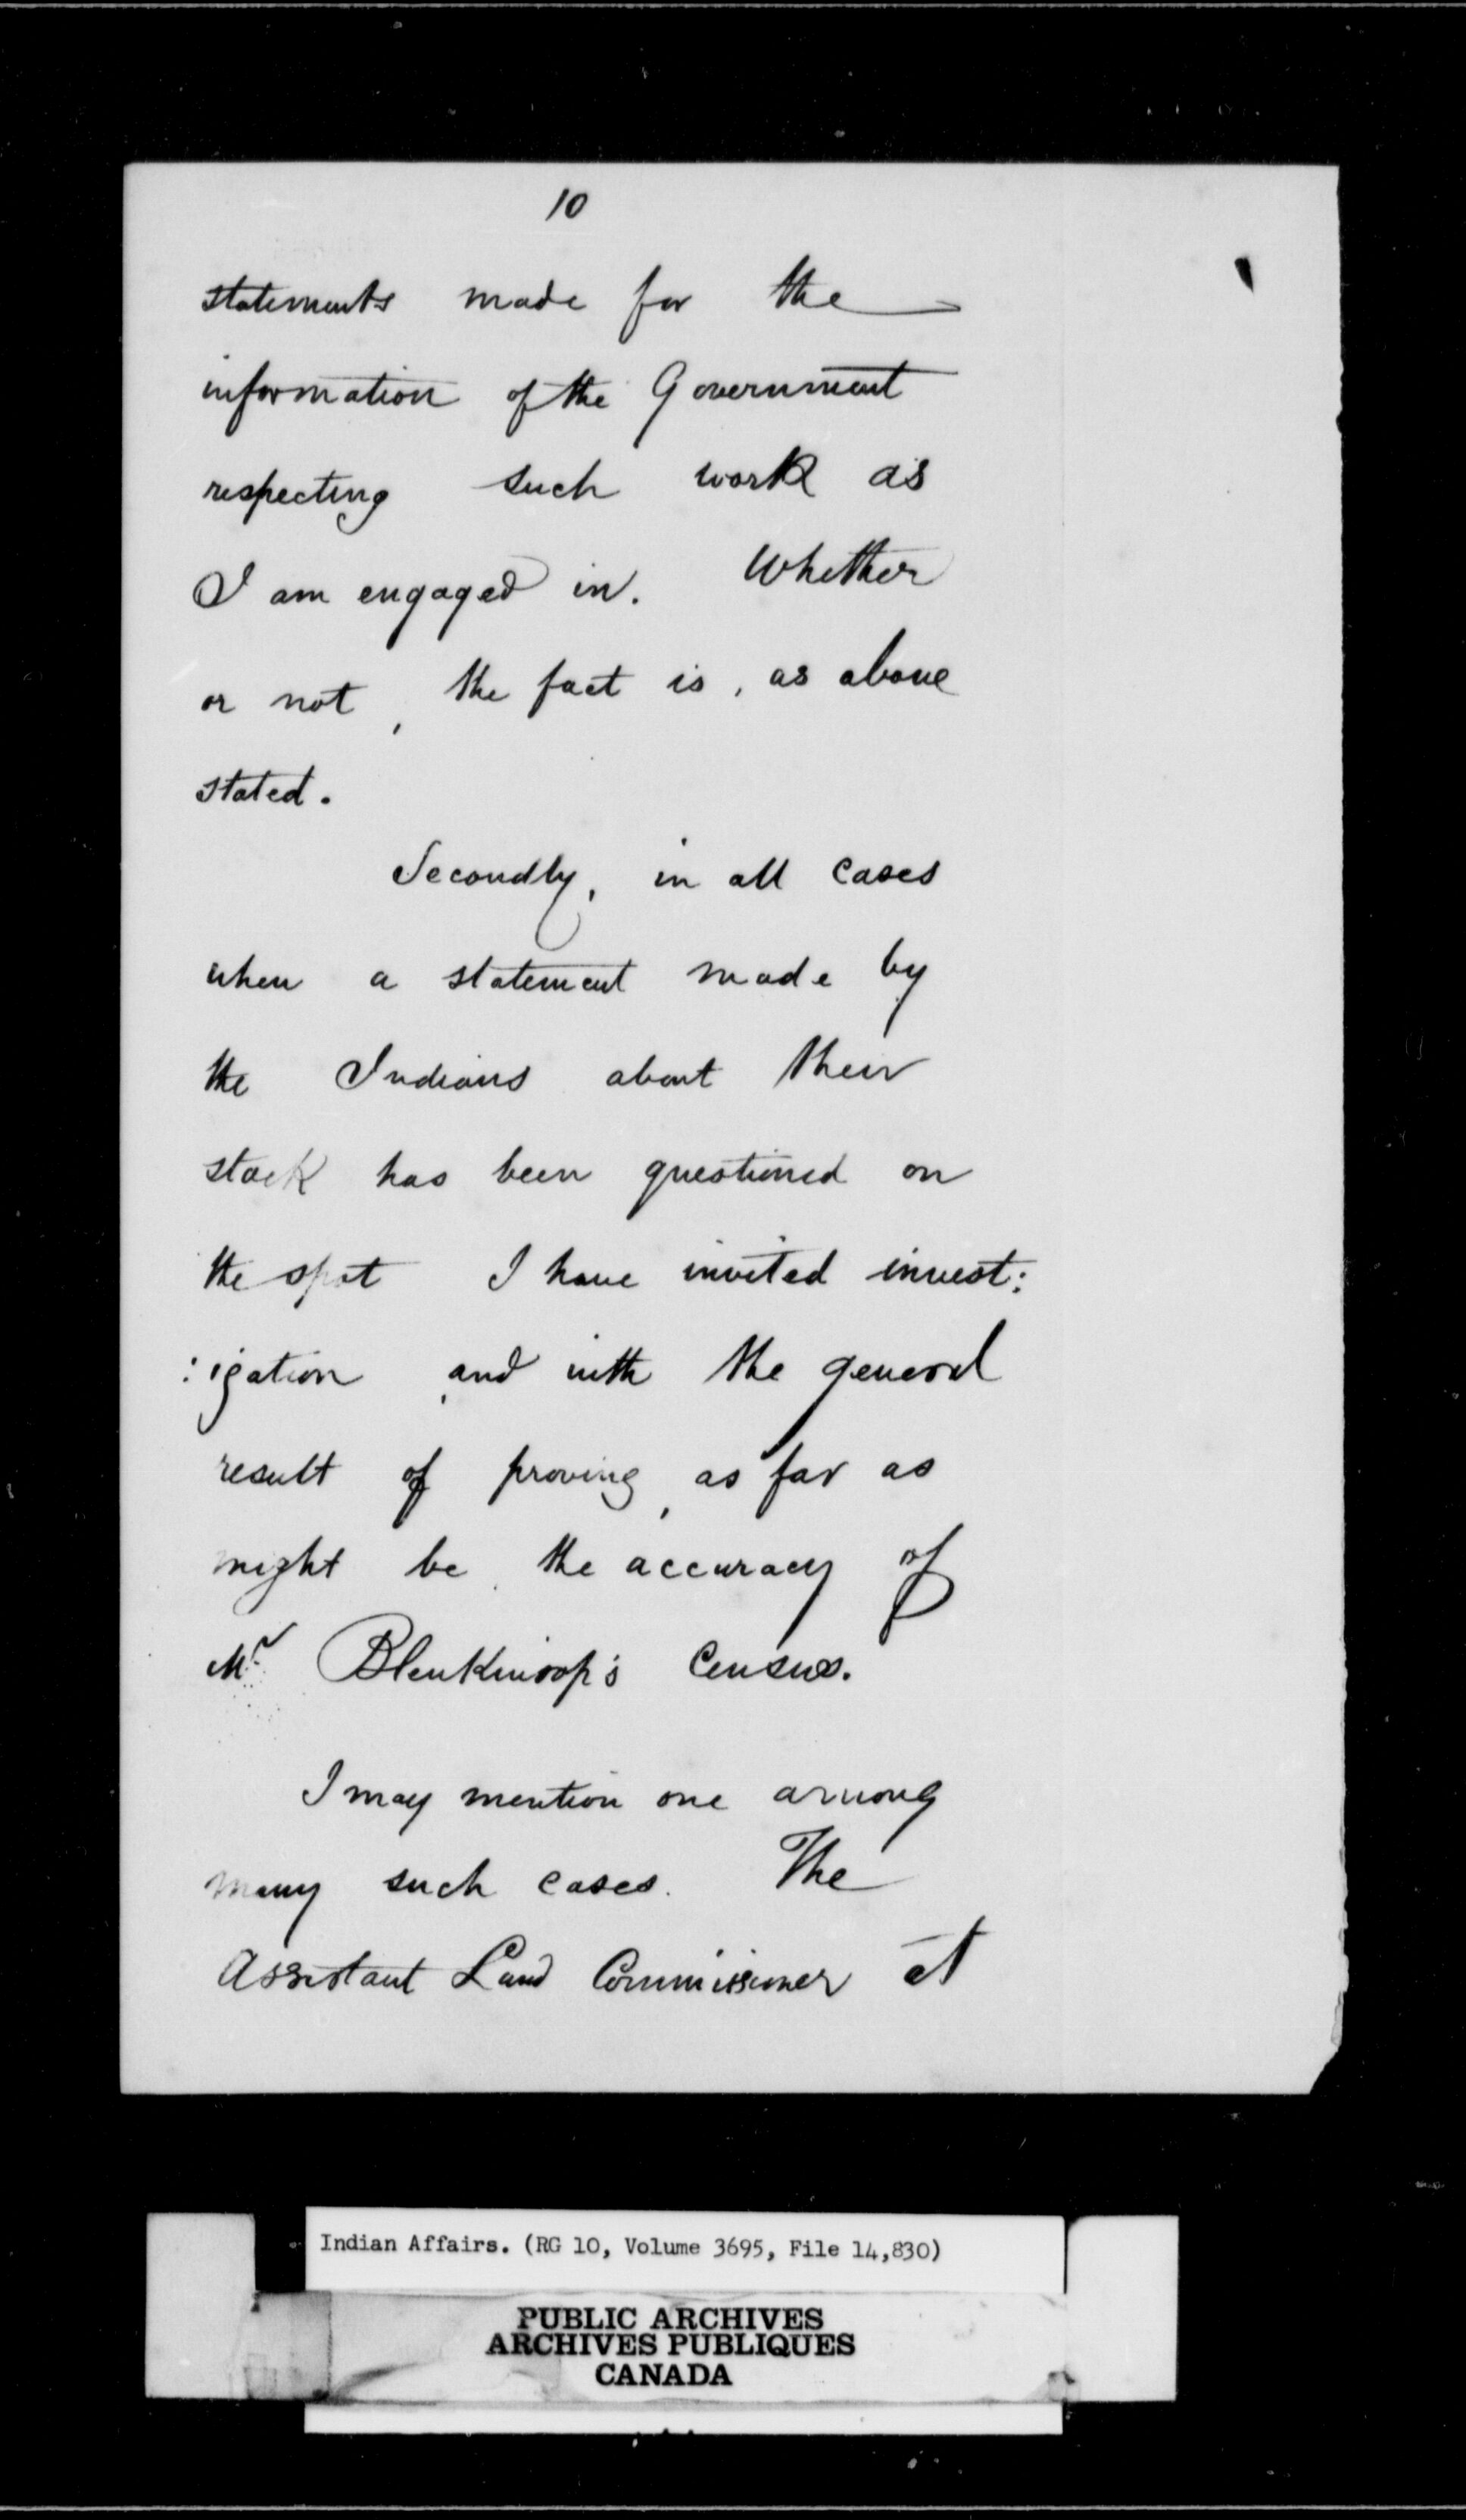 10
statements made for the
information of the Government
respecting such work as
I am engaged in. Whether
or not, the fact is, as above
stated.
Secondly, in all cases
when a statement made by
the Indians about their
stock has been questioned on
the spot I have invited invest:
:igation, and with the general
result of proving, as far as
might be, the accuracy of
Mr Blenkinsop's Census.
I may mention one among
many such cases. The
Assistant Land Commissioner at
Indian Affairs. (RG 10, Volume 3695, File 14,830)
PUBLIC ARCHIVES
ARCHIVES PUBLIQUES
CANADA